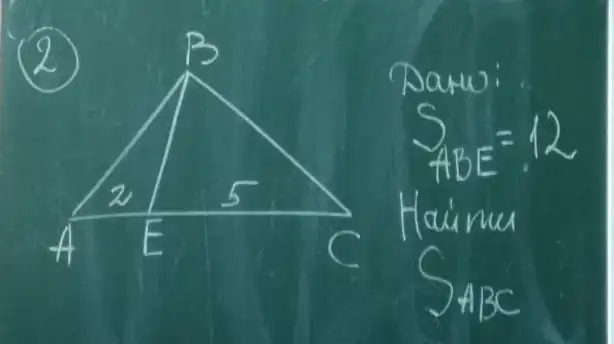 2
B
2
5
A
E
C
Дано:
S ABE = 12
Найти
S ABC